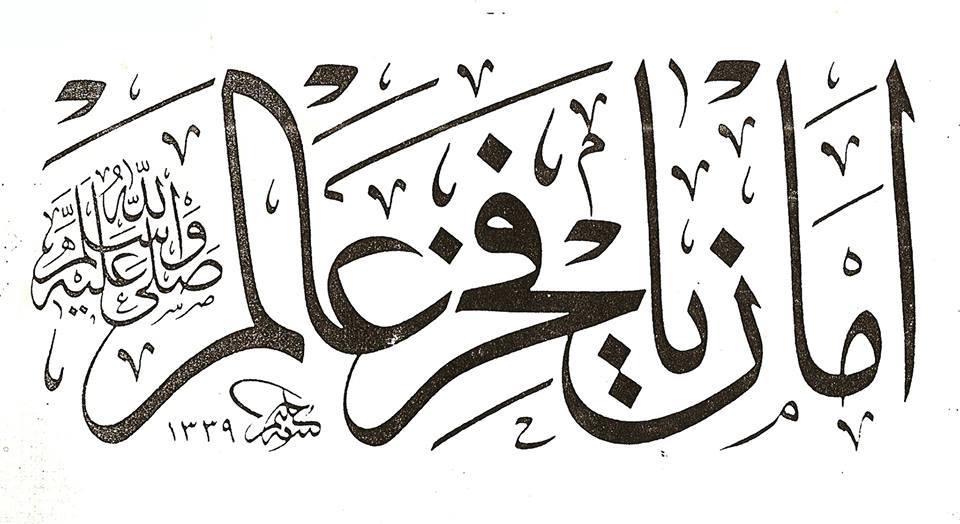 امان يا فخر عالم
صلى الله عليه وسلم
حليم ١٣٣٩